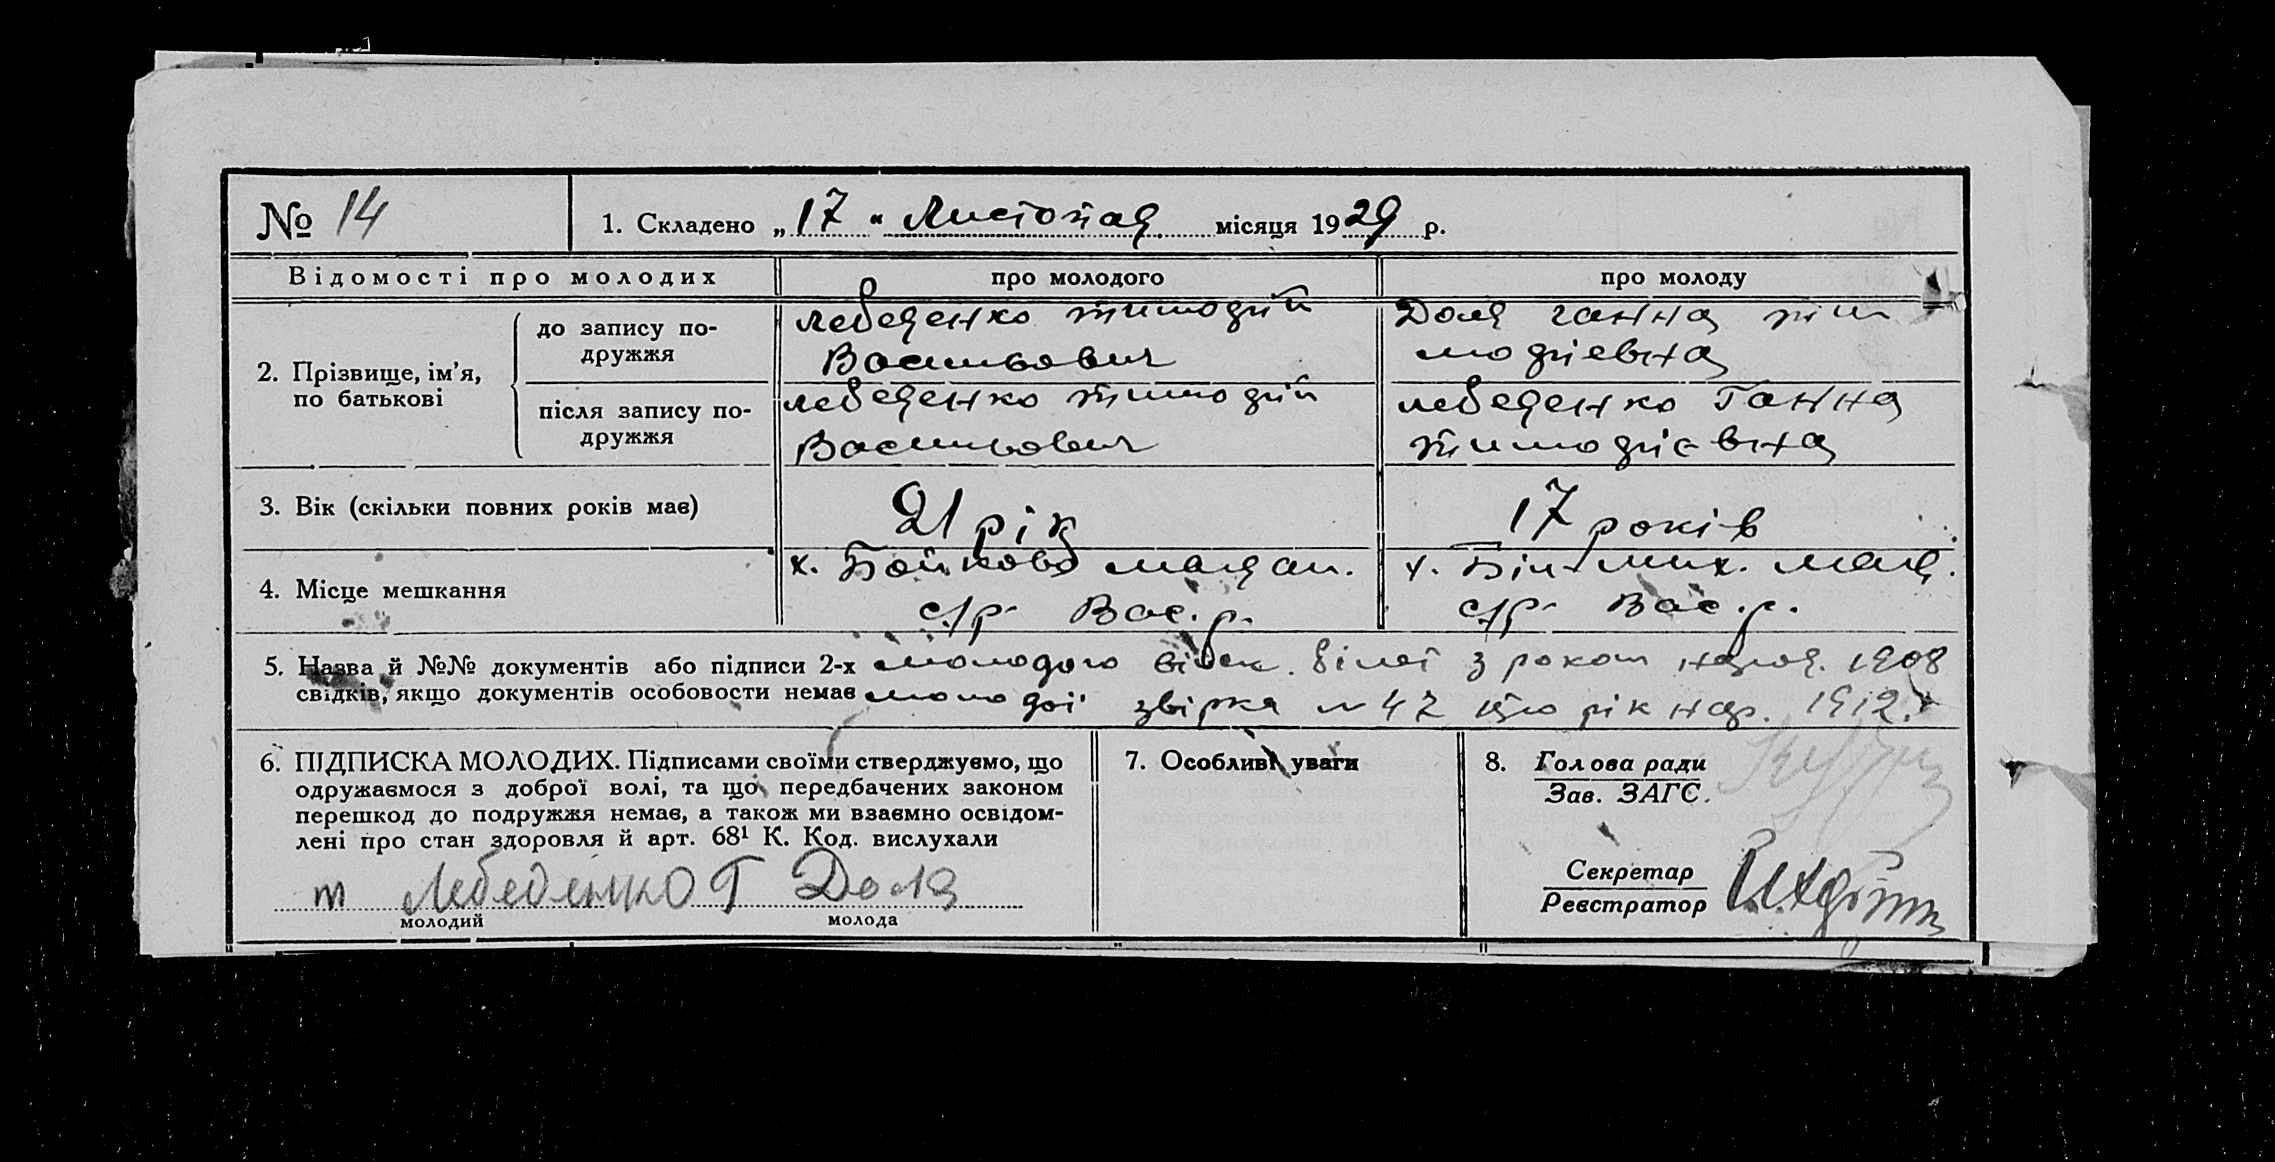 № 14
1. Складено „ 17 “ Листопад місяця 1929 р.
Відомості про молодих
про молодого
про молоду
2. Прізвище, ім’я, по батькові
до запису по-
дружжя
Лебеденко тимофій
Васильович
Доля ганна тим
мофієвна
після запису по-
дружжя
Лебеденко тимофій
Васильович
Лебеденко Ганна
тимофієвна
3. Вік (скільки повних років має)
21 рік
17 років
4. Місце мешкання
х. Бойково майдан.
с/р Вас. р.
х. Мих. майд.
с/р Вас. р.
5. Назва й №№ документів або підписи 2-х молодого війск. білет з роком народ. 1908
свідків, якщо документів особовости немає молодої звірка № 47 що рік нар. 1912.
6. ПІДПИСКА МОЛОДИХ. Підписами своїми стверджуємо, що
одружаємося з доброї волі, та що передбачених законом
перешкод до подружжя немає, а також ми взаємно освідом-
лені про стан здоровля й арт. 68¹ К. Код. вислухали
т Лебеденко Г Доля
молодий
молода
7. Особливі уваги
8. Голова ради
Зав. ЗАГС.
Секретар
Реєстратор